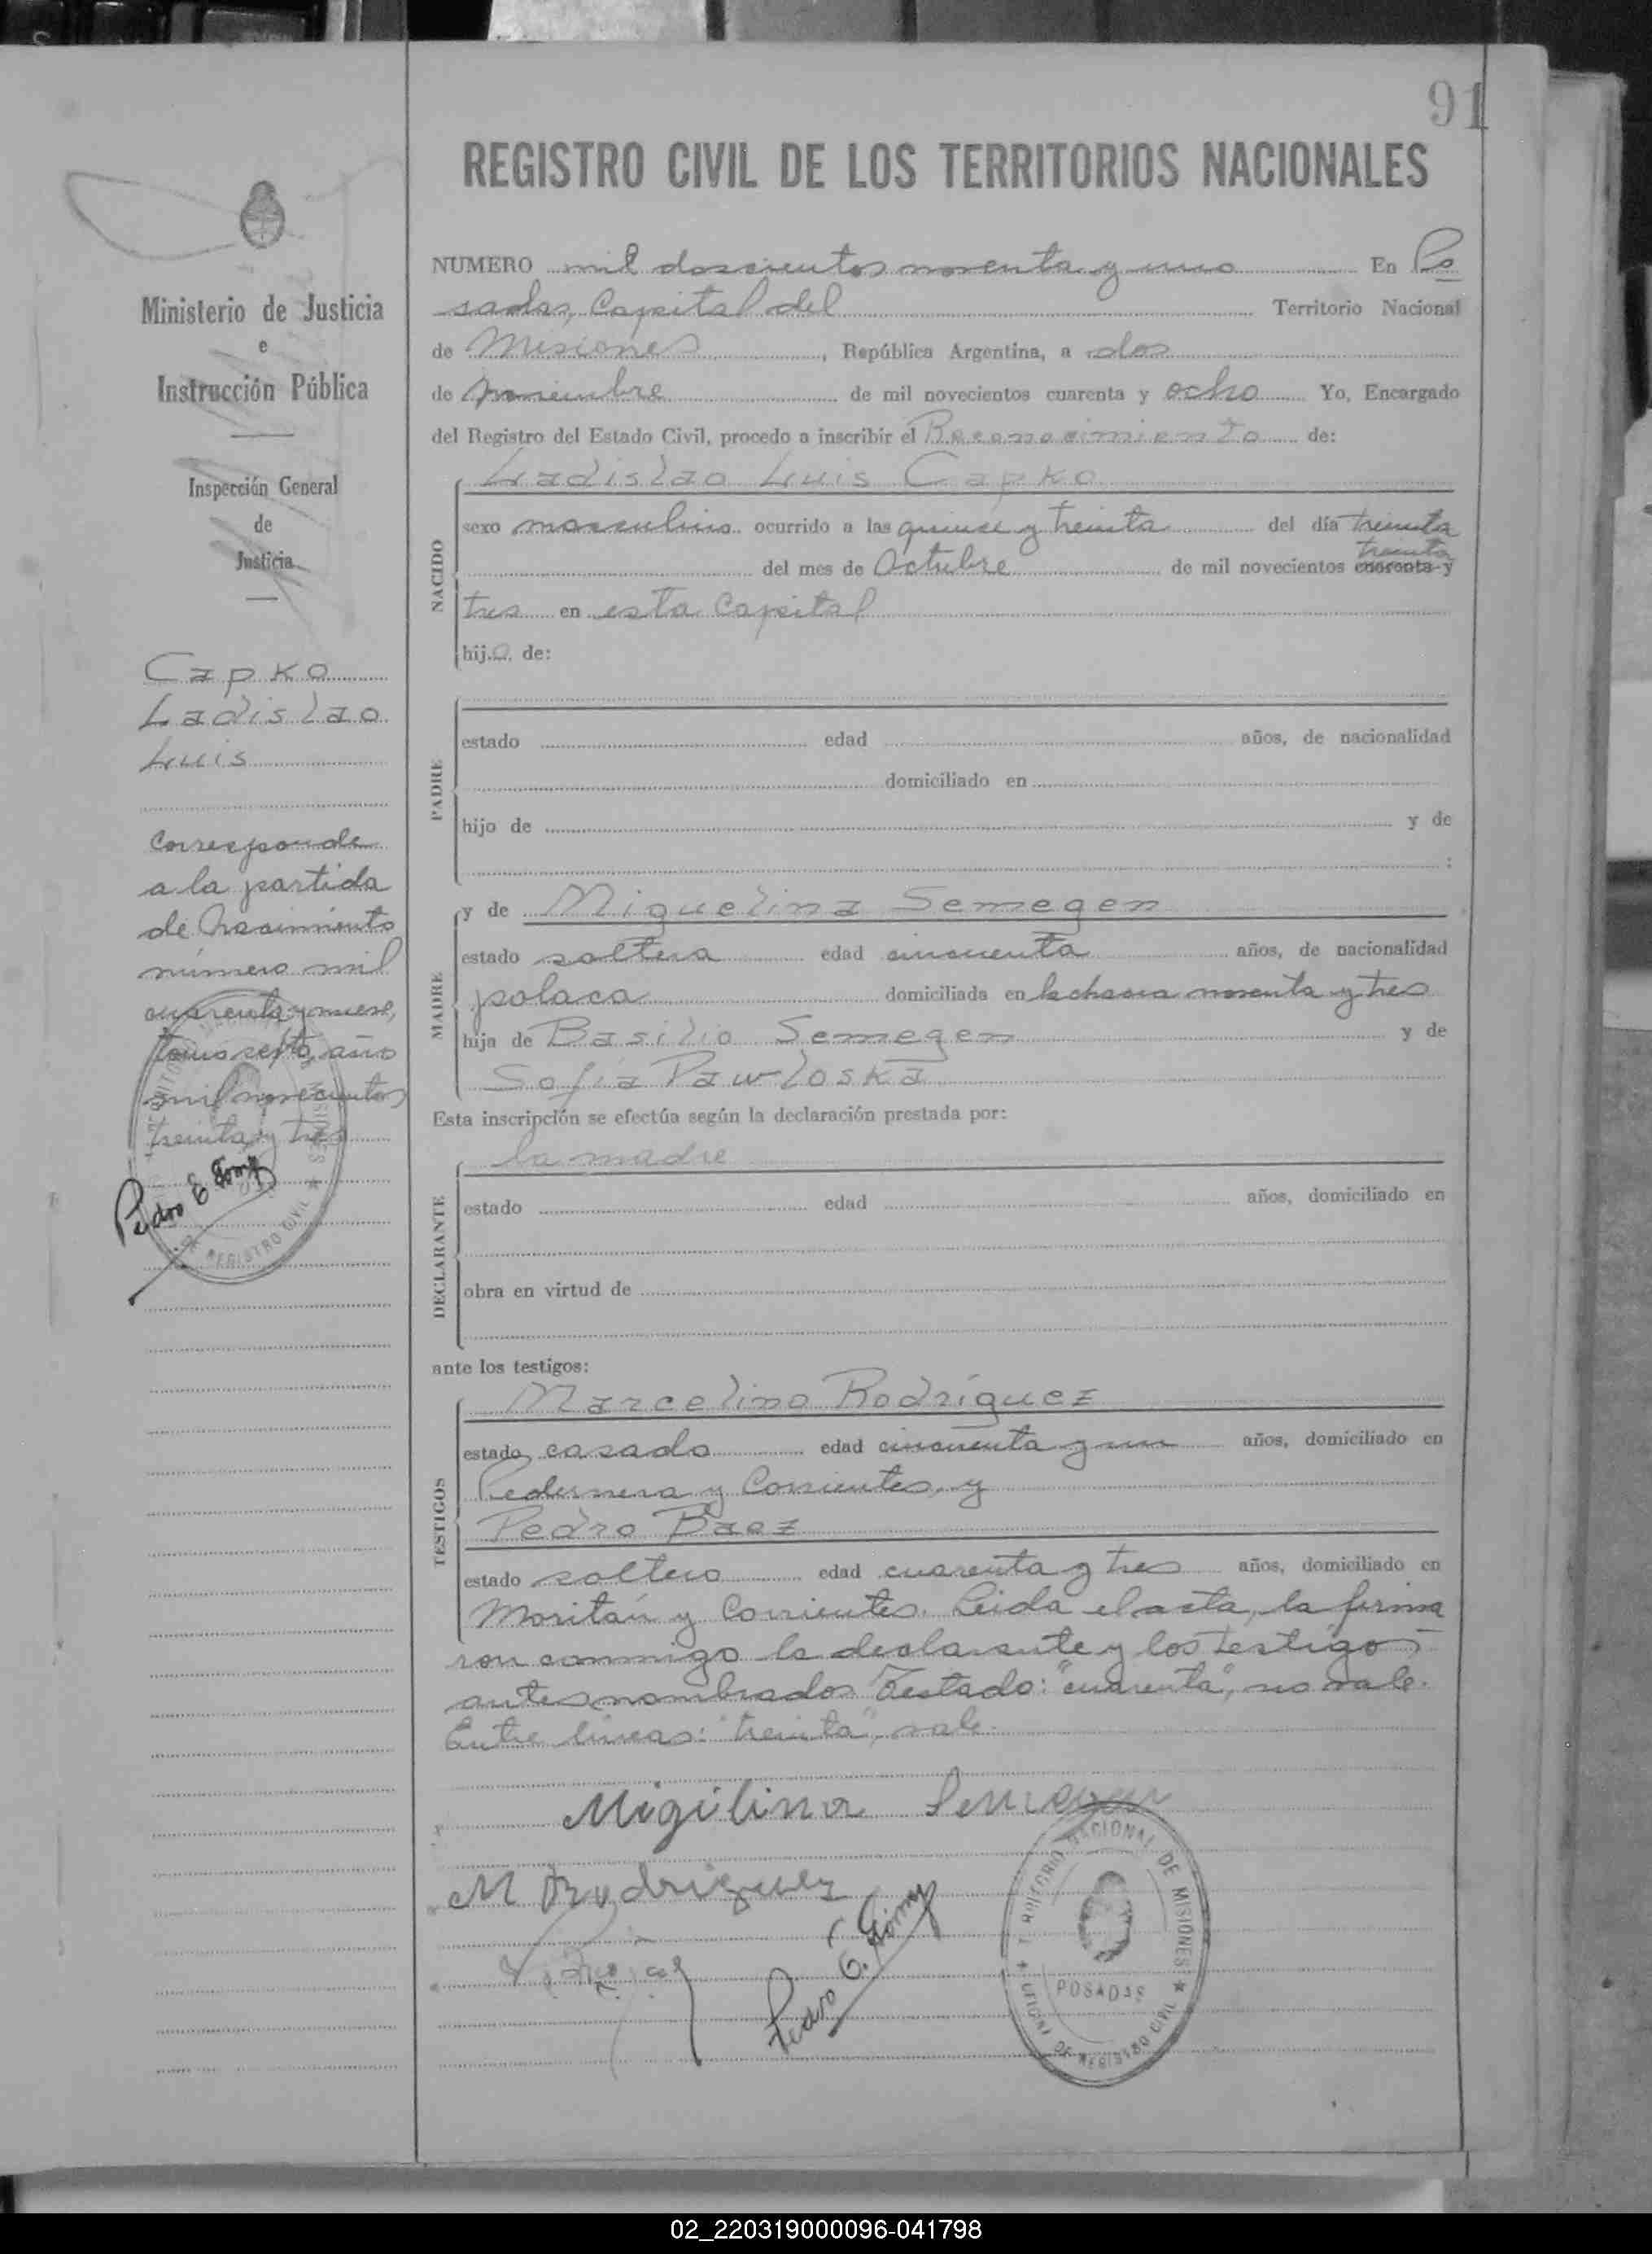 91
REGISTRO CIVIL DE LOS TERRITORIOS NACIONALES
Ministerio de Justicia
e
Instrucción Pública
Inspección General
de
Justicia
Capko
Ladislao
Luis
Corresponde
a la partida
de Nacimiento
número mil
cuarenta y nueve,
tomo sexto, año
mil novecientos
treinta y tres
Pedro E. Gomez
NUMERO mil doscientos noventa y uno En Po
sadas, Capital del Territorio Nacional
de Misiones, República Argentina, a dos
de noviembre de mil novecientos cuarenta y ocho Yo, Encargado
del Registro del Estado Civil, procedo a inscribir el Reconocimiento de:
NACIDO
Ladislao Luis Capko
sexo masculino ocurrido a las quince y treinta del día treinta
treinta
del mes de Octubre de mil novecientos cuarenta y
tres en esta Capital
hijo de:
PADRE
estado edad años, de nacionalidad
domiciliado en
hijo de y de
:
MADRE
y de Miguelina Semegen
estado soltera edad cincuenta años, de nacionalidad
polaca domiciliada en la chacra noventa y tres
hija de Basilio Semegen y de
Sofia Pawloska
Esta inscripción se efectúa según la declaración prestada por:
DECLARANTE
la madre
estado edad años, domiciliado en
obra en virtud de
ante los testigos:
TESTIGOS
Marcelino Rodríguez
estado casado edad cincuenta y un años, domiciliado en
Pedernera y Corrientes, y
Pedro Báez
estado soltero edad cuarenta y tres años, domiciliado en
Moritán y Corrientes. Leida el acta, la firma
ron conmigo la declarante y los testigos
antes nombrados. Testado: "cuarenta", no vale.
Entre lineas: "treinta", vale.
Migilina Semegen
M Rodriguez
Pedro E. Gomez
TERRITORIO NACIONAL DE MISIONES
POSADAS
OFICINA DE REGISTRO CIVIL
02_220319000096-041798